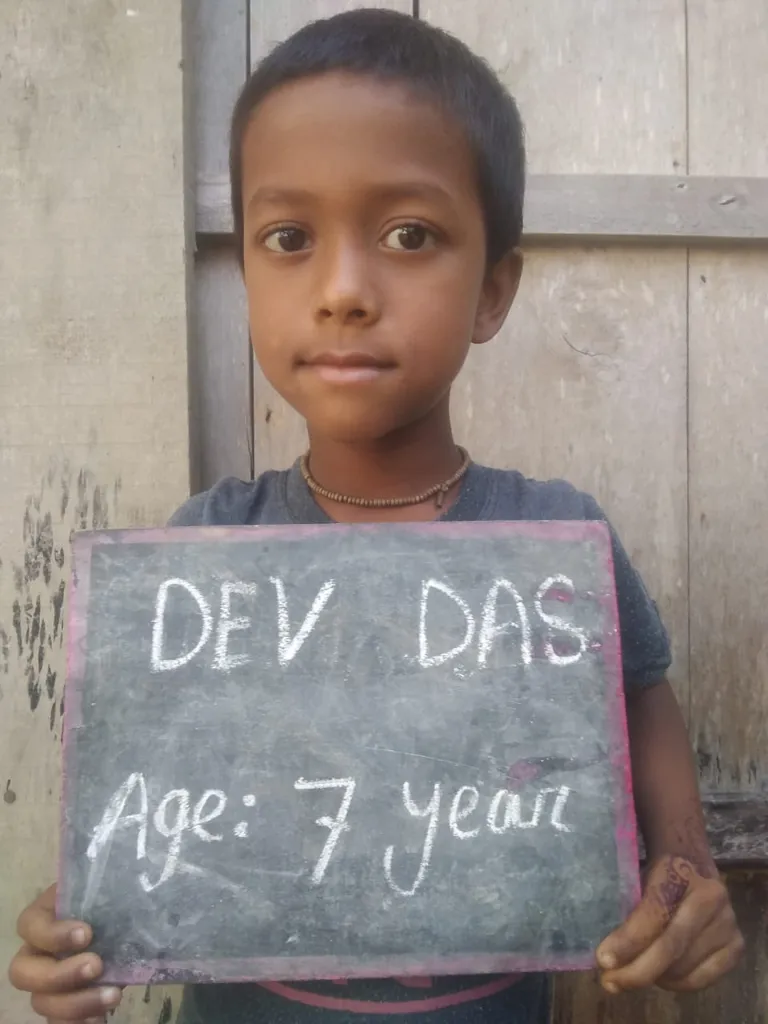 DEV DAS
Age: 7 year